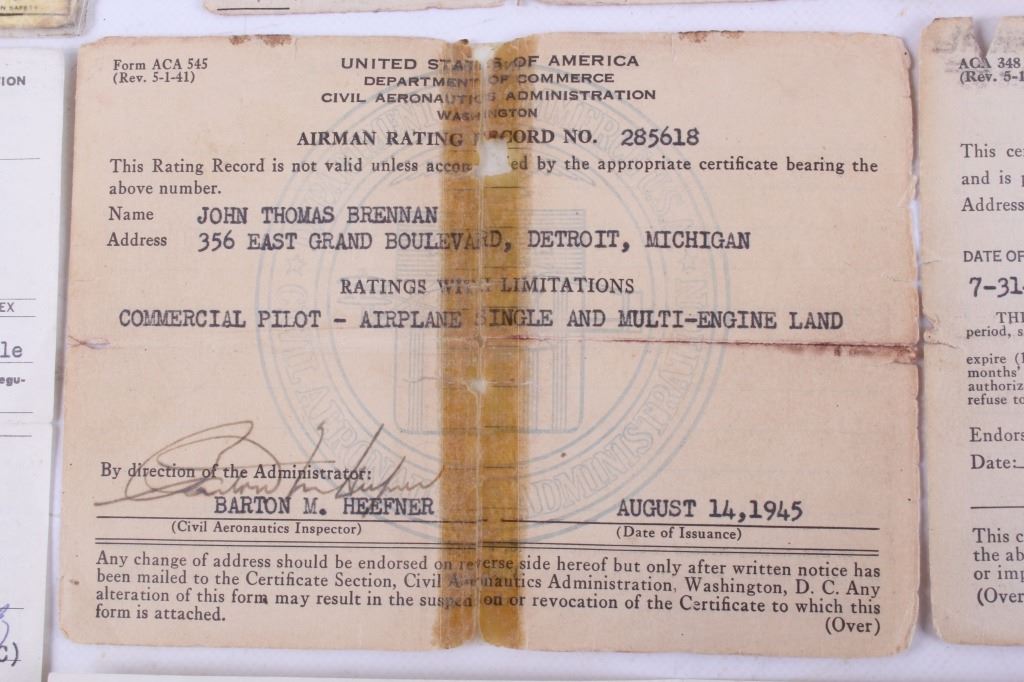 N SAFETY
Form ACA 545
(Rev. 5-1-41)
UNITED STATES OF AMERICA
DEPARTMENT OF COMMERCE
CIVIL AERONAUTICS ADMINISTRATION
WASHINGTON
AIRMAN RATING RECORD NO. 285618
This Rating Record is not valid unless accom ed by the appropriate certificate bearing the
above number.
Name JOHN THOMAS BRENNAN
Address 356 EAST GRAND BOULEVARD, DETROIT, MICHIGAN
RATINGS WITH LIMITATIONS
COMMERCIAL PILOT - AIRPLANE SINGLE AND MULTI-ENGINE LAND
By direction of the Administrator:
BARTON M. HEEFNER
(Civil Aeronautics Inspector)
AUGUST 14,1945
(Date of Issuance)
Any change of address should be endorsed on reverse side hereof but only after written notice has
been mailed to the Certificate Section, Civil Aeronautics Administration, Washington, D. C. Any
alteration of this form may result in the suspension or revocation of the Certificate to which this
form is attached.
(Over)
TION
EX
le
egu-
C)
ACA 348
(Rev. 5-1
This ce
and is
Address
DATE OF
7-31-
TH
period, s
expire (
months'
authoriz
refuse to
Endors
Date:
This c
the ab
or imp
(Over